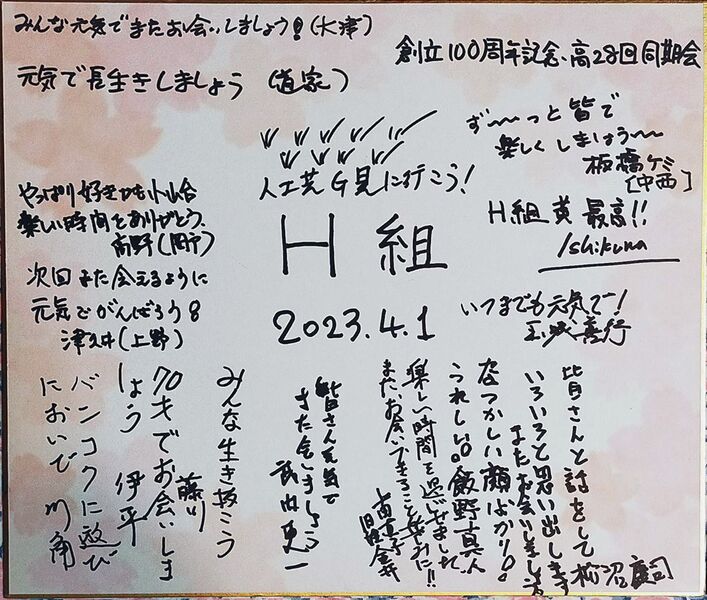 みんな元気でまたお会いしましょう!(大津)
創立100周年記念、高28回同期会
元気で長生きしましょう (道家)
ず〜〜っと皆で
楽しくしましょう〜
板橋ケミ
[中西]
人工芝G見に行こう!
やっぱり好きかも小山台
楽しい時間をありがとう、
高野(岡戸)
H組
H組 英 最高!!
Ishikura
次回また会えるように
元気でがんばろう。
津久井(上野)
2023.4.1
いつまでも元気で!
皆さんと話をして
いろいろと思い出します
またお会いしましょう
松沼庸司
なつかしい顔ばかり。
うれしい。飯野真人
楽しい時間を過ごせました。
また、お会いできることを楽しみに!!
皆さん元気で
また会いましょう
武内更一
みんな生き抜こう
藤川
70才でお会いしま
しょう 伊平
バンコクに遊び
においで 川角